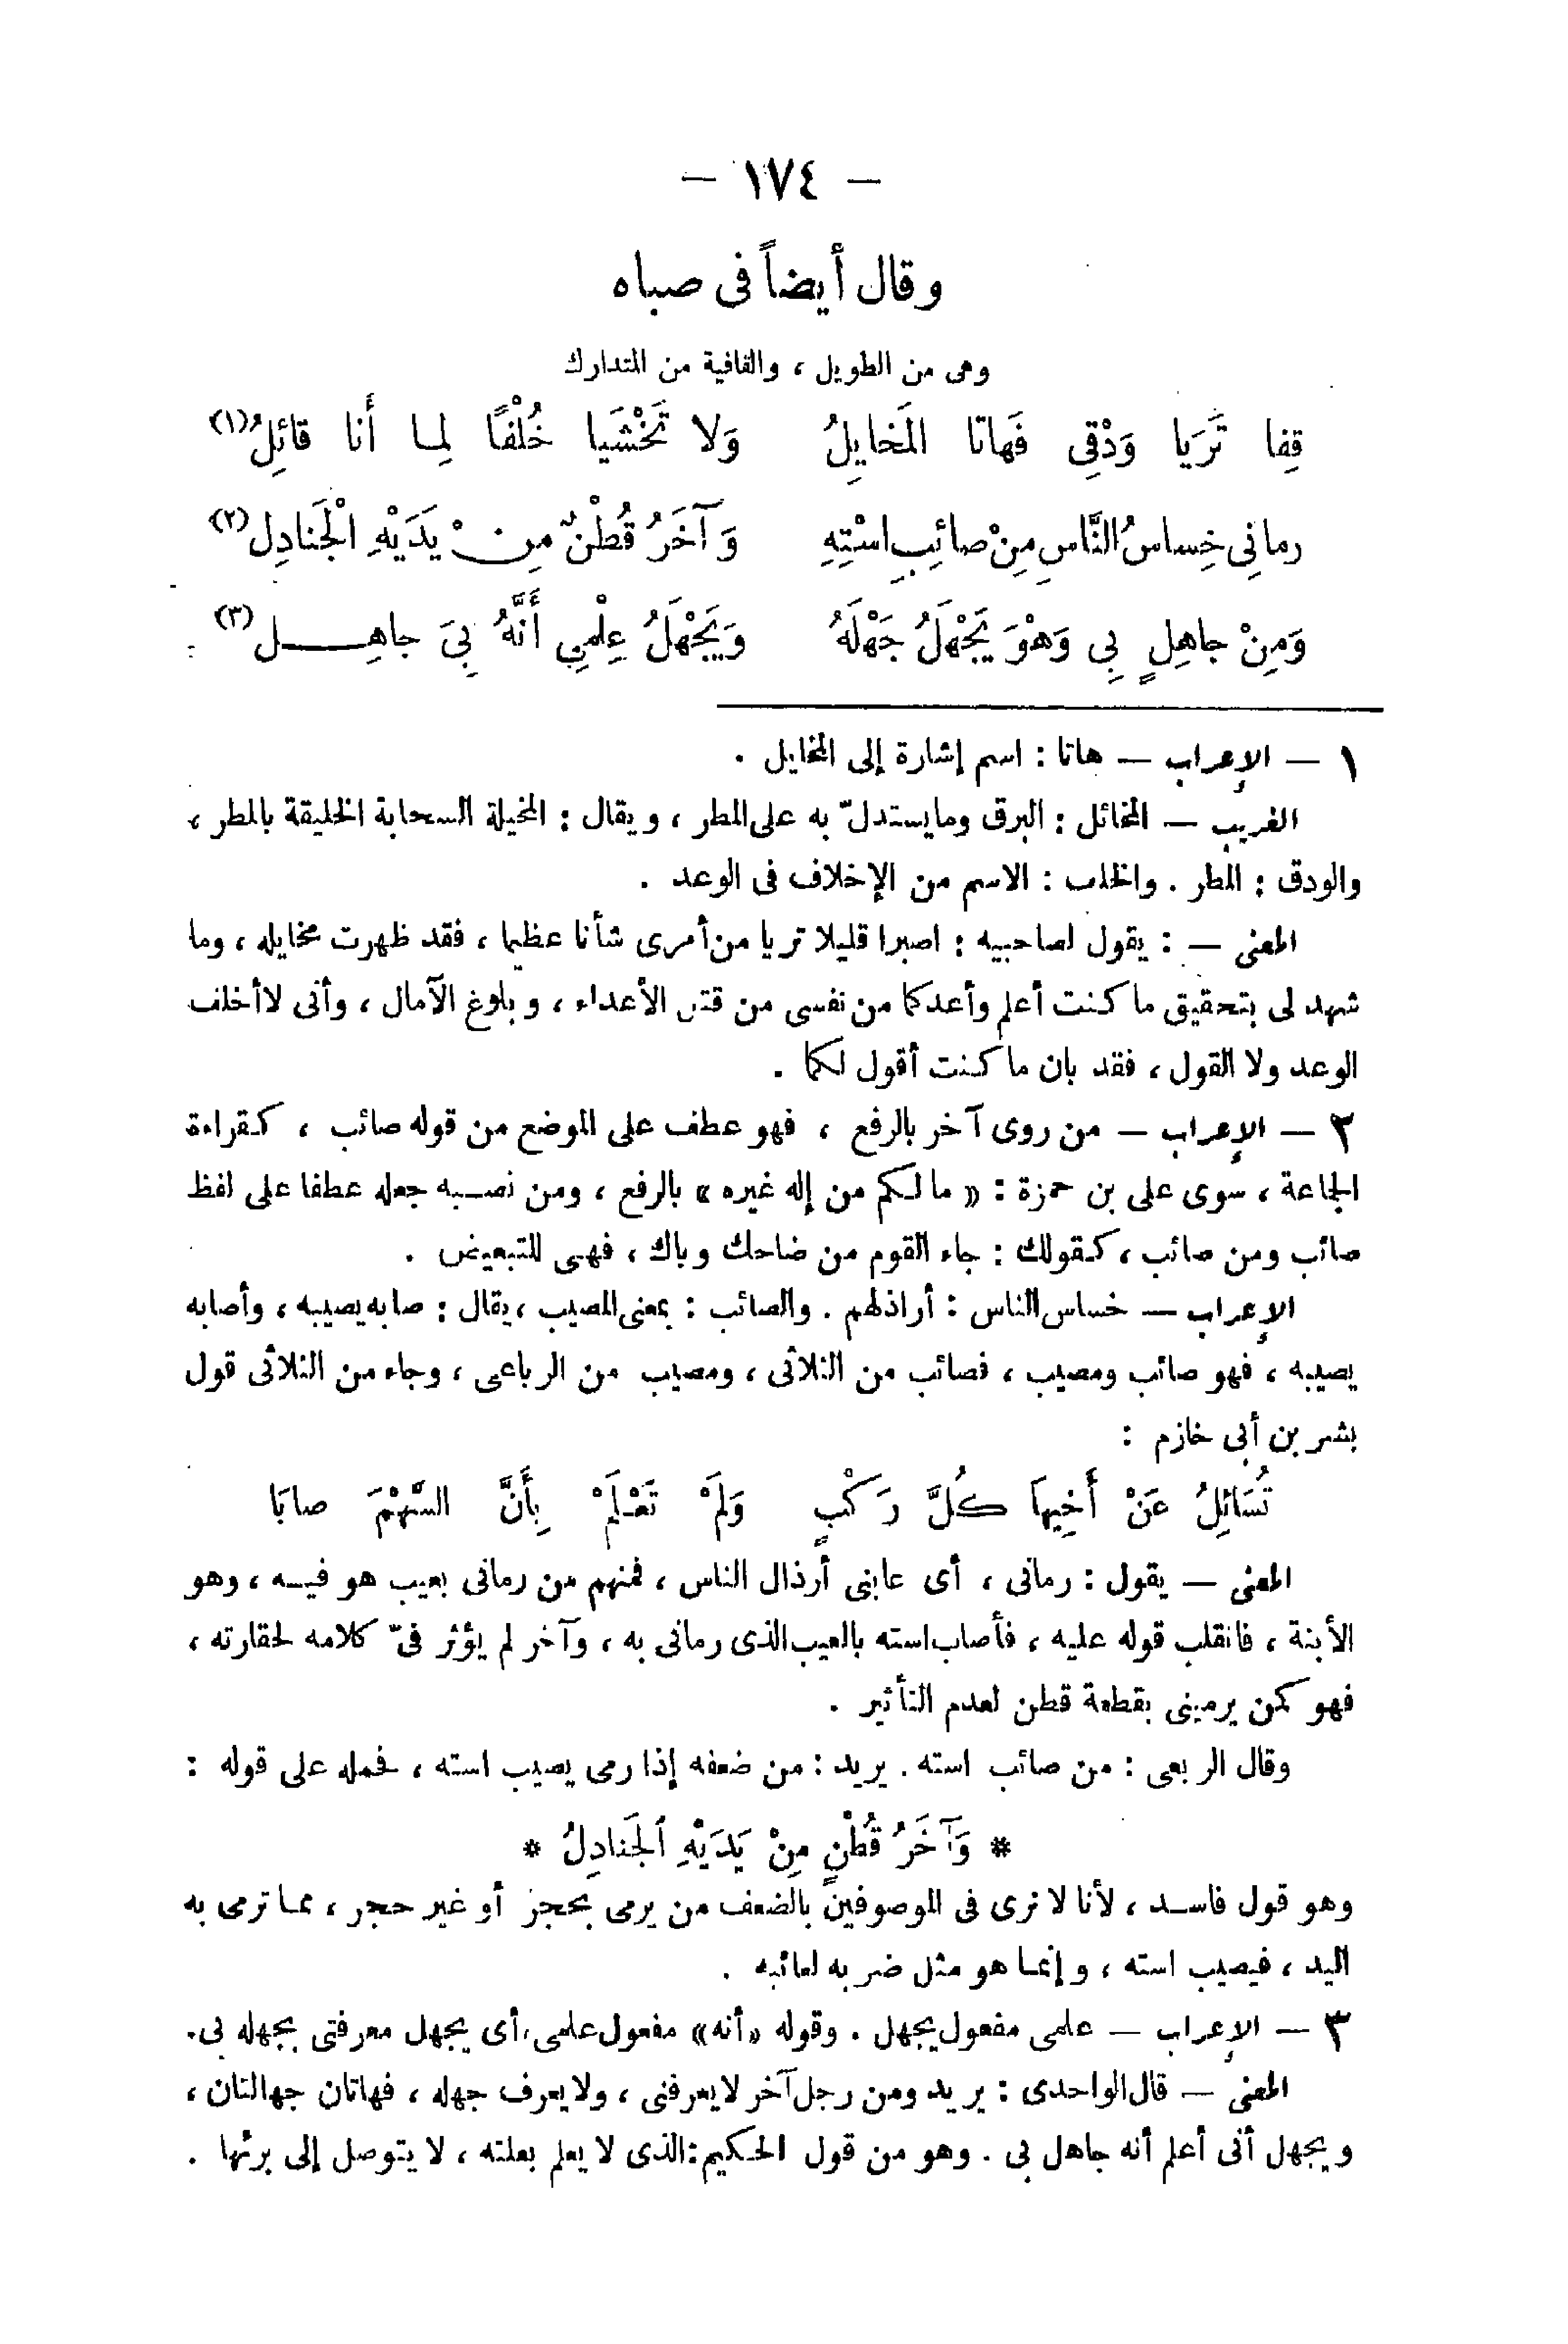 — ١٧٤ —
وقال أيضاً فى صباه
وهى من الطويل ، والقافية من المتدارك
قِفا تَرَيا وَدْقِى فَهاتا المَخايِلُ وَلا تَخْشَيا خُلْفًا لِما أَنا قائِلُ(١)
رمانِى خِساسُ النَّاسِ مِنْ صائِبِ اسْتِهِ وَآخَرُ قُطْنٌ مِنْ يَدَيْهِ الْجَنادِل(٢)
وَمِنْ جاهِلٍ بِى وَهْوَ يَجْهَلُ جَهْلَهُ وَيَجْهَلُ عِلْمِى أَنَّهُ بِىَ جاهِـــل(٣)
١ — الإعراب — هاتا : اسم إشارة إلى المخايل .
الغريب — المخائل : البرق ومايستدلّ به على المطر ، ويقال : المخيلة السحابة الخليقة بالمطر ،
والودق : المطر . والخلف : الاسم من الإخلاف فى الوعد .
المعنى — : يقول لصاحبيه : اصبرا قليلا تريا من أمرى شأنا عظيما ، فقد ظهرت مخايله ، وما
شهد لى بتحقيق ما كنت أعلم وأعدكما من نفسى من قتل الأعداء ، وبلوغ الآمال ، وأنى لا أخلف
الوعد ولا القول ، فقد بان ما كنت أقول لكما .
٢ — الإعراب — من روى آخر بالرفع ، فهو عطف على الموضع من قوله صائب ، كقراءة
الجماعة ، سوى على بن حمزة : « مالكم من إله غيره » بالرفع ، ومن نصبه جعله عطفا على لفظ
صائب ومن صائب ، كقولك : جاء القوم من ضاحك وباك ، فهى للتبعيض .
الإعراب — خساس الناس : أراذلهم . والصائب : بمعنى المصيب ، يقال : صابه يصيبه ، وأصابه
يصيبه ، فهو صائب ومصيب ، فصائب من الثلاثى ، ومصيب من الرباعى ، وجاء من الثلاثى قول
بشر بن أبى خازم :
تُسَائِلُ عَنْ أَخِيهاَ كُلَّ رَكْبٍ وَلَمْ تَعْلَمْ بِأَنَّ السَّهْمَ صابَا
المعنى — يقول : رمانى ، أى عابنى أرذال الناس ، فمنهم من رمانى بعيب هو فيـه ، وهو
الأبنة ، فانقلب قوله عليه ، فأصاب استه بالعيب الذى رمانى به ، وآخر لم يؤثر فىّ كلامه لحقارته ،
فهو كمن يرمينى بقطعة قطن لعدم التأثير .
وقال الربعى : من صائب استه . يريد : من ضعفه إذا رمى يصيب استه ، فحمله على قوله :
* وَآخَرُ قُطْنٍ مِنْ يَدَيْهِ الجَنادِلُ *
وهو قول فاسـد ، لأنا لا نرى فى الموصوفين بالضعف من يرمى بحجر أو غير حجر ، مما ترمى به
اليد ، فيصيب استه ، وإنما هو مثل ضربه لعائبه .
٣ — الإعراب — علمى مفعول يجهل . وقوله «أنه» مفعول علمى ، أى يجهل معرفتى بجهله بى .
المعنى — قال الواحدى : يريد ومن رجل آخر لا يعرفنى ، ولا يعرف جهله ، فهاتان جهالتان ،
ويجهل أنى أعلم أنه جاهل بى . وهو من قول الحكيم : الذى لا يعلم بعلته ، لا يتوصل إلى برئها .